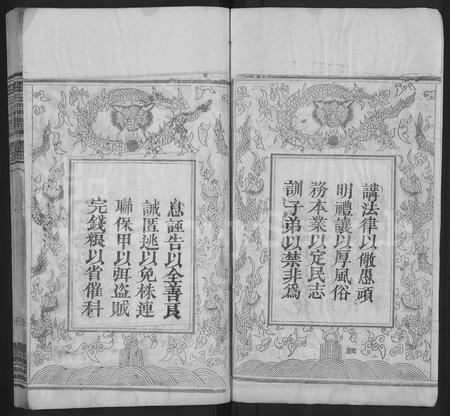 講法律以儆愚頑
明禮讓以厚風俗
務本業以定民志
訓子弟以禁非為
息誣告以全善良
誡匿逃以免株連
聯保甲以弭盗賊
完錢粮以省催科